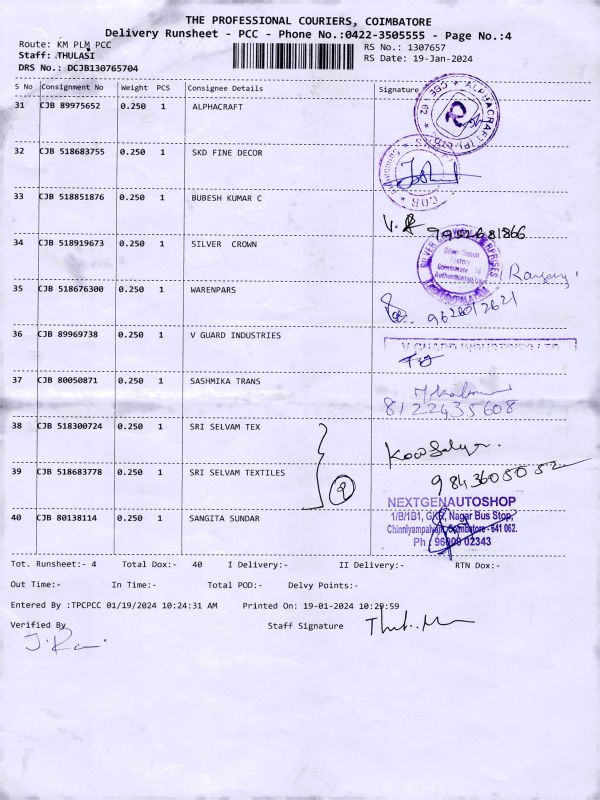 THE PROFESSIONAL COURIERS, COIMBATORE
Delivery Runsheet - PCC - Phone No.:0422-3505555 - Page No.:4
Route: KM PLM PCC
RS No.: 1307657
Staff: THULASI
RS Date: 19-Jan-2024
DRS No.: DCJB130765704
S No Consignment No Weight PCS Consignee Details Signature
31 CJB 89975652 0.250 1 ALPHACRAFT
ALPHACRAFT (P) LTD. CBE
32 CJB 518683755 0.250 1 SKD FINE DECOR
33 CJB 518851876 0.250 1 BUBESH KUMAR C
34 CJB 518919673 0.250 1 SILVER CROWN
Silver Crown
Factory
Coimbatore 14
35 CJB 518676300 0.250 1 WARENPARS
9626012621
36 CJB 89969738 0.250 1 V GUARD INDUSTRIES
V GUARD INDUSTRIES LTD
37 CJB 80050871 0.250 1 SASHMIKA TRANS
8122435608
38 CJB 518300724 0.250 1 SRI SELVAM TEX
39 CJB 518683778 0.250 1 SRI SELVAM TEXTILES
9843605052
NEXTGENAUTOSHOP
1/B/1B1, Nagar Bus Stop,
Coimbatore - 641 062.
Ph : 02343
40 CJB 80138114 0.250 1 SANGITA SUNDAR
Tot. Runsheet:- 4 Total Dox:- 40 I Delivery:- II Delivery:- RTN Dox:-
Out Time:- In Time:- Total POD:- Delvy Points:-
Entered By :TPCPCC 01/19/2024 10:24:31 AM Printed On: 19-01-2024 10:29:59
Verified By Staff Signature